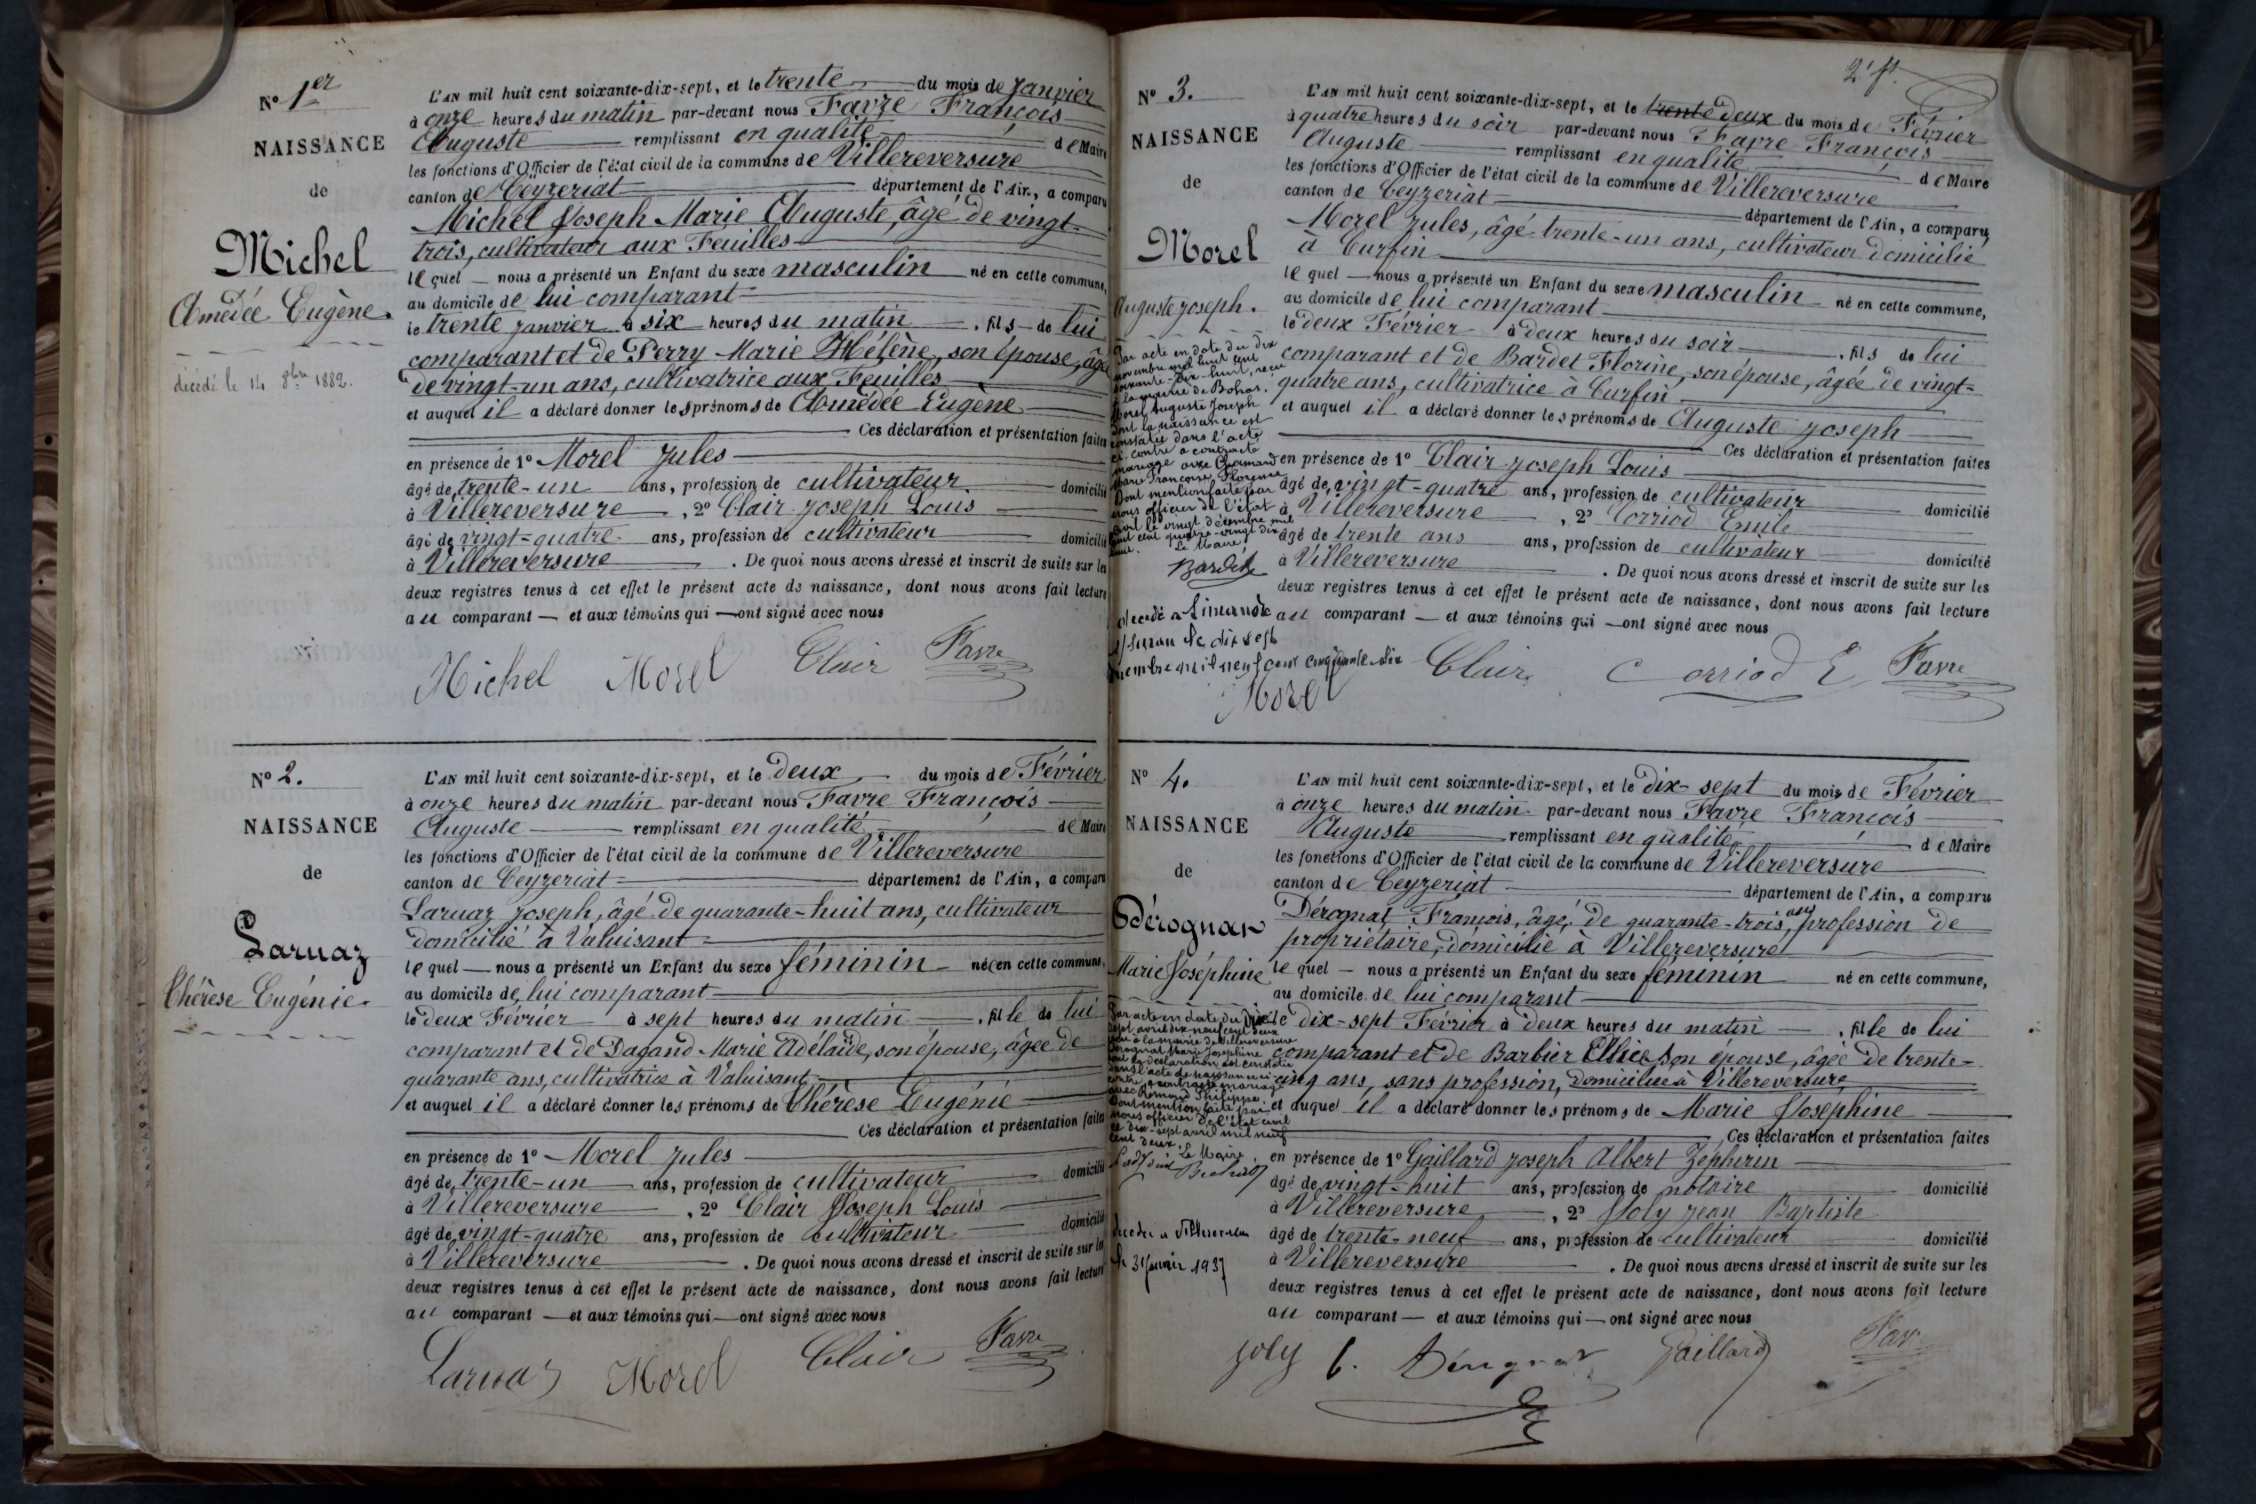 N° 1er
NAISSANCE
de
Michel
Amédée Eugène.
décédé le 14 8bre 1882.
L'AN mil huit cent soixante-dix-sept, et le trente du mois de Janvier
à onze heures du matin par-devant nous Favre François
Auguste remplissant en qualité de Maire
les fonctions d'Officier de l'état civil de la commune de Villereversure
canton de Ceyzeriat département de l'Ain, a comparu
Michel Joseph Marie Auguste, âgé de vingt-
trois, cultivateur aux Feuilles
lequel nous a présenté un Enfant du sexe masculin né en cette commune,
au domicile de lui comparant
le trente janvier à six heures du matin, fils de lui
comparant et de Perry Marie Hélène, son épouse, âgé
de vingt-un ans, cultivatrice aux Feuilles
et auquel il a déclaré donner les prénoms de Amédée Eugène
Ces déclaration et présentation faites
en présence de 1° Morel Jules
âgé de trente-un ans, profession de cultivateur domicilié
à Villereversure, 2° Clair Joseph Louis
âgé de vingt-quatre ans, profession de cultivateur domicilié
à Villereversure. De quoi nous avons dressé et inscrit de suite sur les
deux registres tenus à cet effet le présent acte de naissance, dont nous avons fait lecture
au comparant et aux témoins qui ont signé avec nous
Michel Morel Clair Favre
N° 2.
NAISSANCE
de
Laruaz
Thérèse Eugénie.
L'AN mil huit cent soixante-dix-sept, et le deux du mois de Février
à onze heures du matin par-devant nous Favre François
Auguste remplissant en qualité de Maire
les fonctions d'Officier de l'état civil de la commune de Villereversure
canton de Ceyzeriat département de l'Ain, a comparu
Laruaz Joseph, âgé de quarante-huit ans, cultivateur
domicilié à Valuisant
lequel nous a présenté un Enfant du sexe féminin née en cette commune,
au domicile de lui comparant
le deux Février à sept heures du matin, fille de lui
comparant et de Dagand Marie Adélaïde, son épouse, âgée de
quarante ans, cultivatrice à Valuisant
et auquel il a déclaré donner les prénoms de Thérèse Eugénie
Ces déclaration et présentation faites
en présence de 1° Morel Jules
âgé de trente-un ans, profession de cultivateur domicilié
à Villereversure, 2° Clair Joseph Louis
âgé de vingt-quatre ans, profession de cultivateur domicilié
à Villereversure. De quoi nous avons dressé et inscrit de suite sur les
deux registres tenus à cet effet le présent acte de naissance, dont nous avons fait lecture
au comparant et aux témoins qui ont signé avec nous
Laruaz Morel Clair Favre
2e ft.
N° 3.
NAISSANCE
de
Morel
Auguste Joseph.
Par acte en date du dix
novembre mil huit cent
reçu
à la mairie de Bohas,
Morel Auguste Joseph
dont la naissance est
constatée dans l'acte
ci-contre a contracté
mariage avec
Marie Françoise Florence
Dont mention faite par
nous officier de l'état
civil le vingt décembre mil
huit cent quatre-vingt dix
huit.
Le Maire,
décédé à Simandre
s/ Suran le dix sept
mil neuf cent cinquante six
L'AN mil huit cent soixante-dix-sept, et le trente deux du mois de Février
à quatre heures du soir par-devant nous Favre François
Auguste remplissant en qualité de Maire
les fonctions d'Officier de l'état civil de la commune de Villereversure
canton de Ceyzeriat département de l'Ain, a comparu
Morel Jules, âgé trente-un ans, cultivateur domicilié
à Curfin
lequel nous a présenté un Enfant du sexe masculin né en cette commune,
au domicile de lui comparant
le deux Février à deux heures du soir, fils de lui
comparant et de Bardet Florine, son épouse, âgée de vingt-
quatre ans, cultivatrice à Curfin
et auquel il a déclaré donner les prénoms de Auguste Joseph
Ces déclaration et présentation faites
en présence de 1° Clair Joseph Louis
âgé de vingt-quatre ans, profession de cultivateur domicilié
à Villereversure, 2° Corriod Emile
âgé de trente ans ans, profession de cultivateur domicilié
à Villereversure. De quoi nous avons dressé et inscrit de suite sur les
deux registres tenus à cet effet le présent acte de naissance, dont nous avons fait lecture
au comparant et aux témoins qui ont signé avec nous
Morel Clair Corriod E Favre
N° 4.
NAISSANCE
de
Dérognat
Marie Joséphine
Par acte en date du dix
sept avril dix neuf cent deux
à la mairie de Villereversure
Dérognat Marie Joséphine
dans l'acte de naissance ci
contre a contracté mariage
avec Romand Philippe.
Dont mention faite par
nous officier de l'état civil
le dix-sept avril mil neuf
cent deux.
Le Maire,
décédée à Villereversure
le 31 janvier 1937
L'AN mil huit cent soixante-dix-sept, et le dix-sept du mois de Février
à onze heures du matin par-devant nous Favre François
Auguste remplissant en qualité de Maire
les fonctions d'Officier de l'état civil de la commune de Villereversure
canton de Ceyzeriat département de l'Ain, a comparu
Dérognat François, âgé de quarante-trois ans, profession de
propriétaire, domicilié à Villereversure
lequel nous a présenté un Enfant du sexe féminin né en cette commune,
au domicile de lui comparant
le dix-sept Février à deux heures du matin, fille de lui
comparant et de Barbier son épouse, âgée de trente-
cinq ans, sans profession, domiciliée à Villereversure
et auquel il a déclaré donner les prénoms de Marie Joséphine
Ces déclaration et présentation faites
en présence de 1° Gaillard Joseph Albert Zéphirin
âgé de vingt-huit ans, profession de notaire domicilié
à Villereversure, 2° Joly Jean Baptiste
âgé de trente-neuf ans, profession de cultivateur domicilié
à Villereversure. De quoi nous avons dressé et inscrit de suite sur les
deux registres tenus à cet effet le présent acte de naissance, dont nous avons fait lecture
au comparant et aux témoins qui ont signé avec nous
Joly f. Dérognat Gaillard Favre